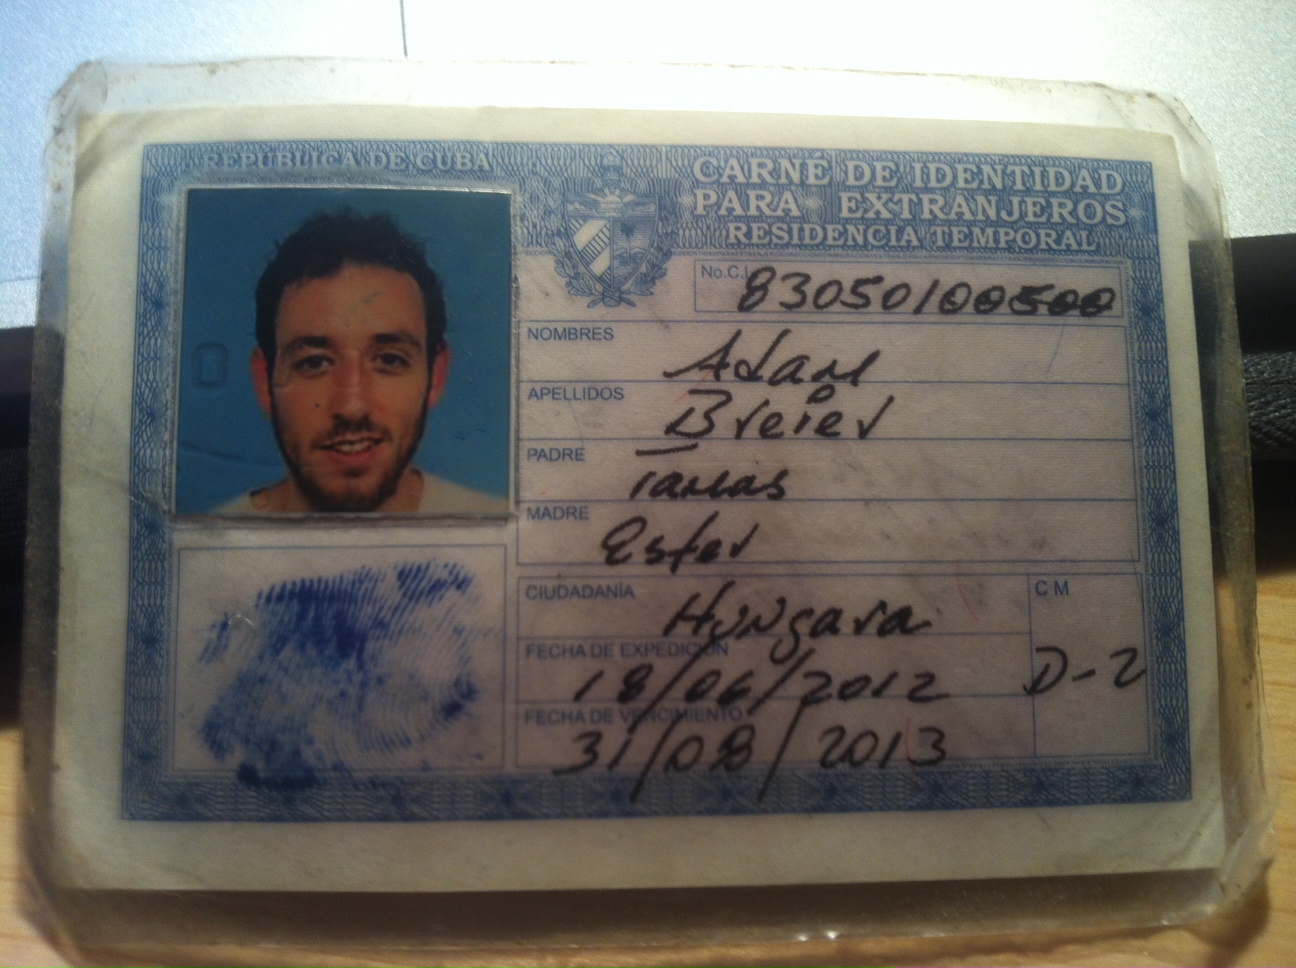 REPUBLICA DE CUBA
CARNÉ DE IDENTIDAD
PARA EXTRANJEROS
RESIDENCIA TEMPORAL
No.C.I. 83050100500
NOMBRES Adam
APELLIDOS Breier
PADRE Tamas
MADRE Ester
CIUDADANÍA Hungara
CM D-2
FECHA DE EXPEDICIÓN 18/06/2012
FECHA DE VENCIMIENTO 31/08/2013